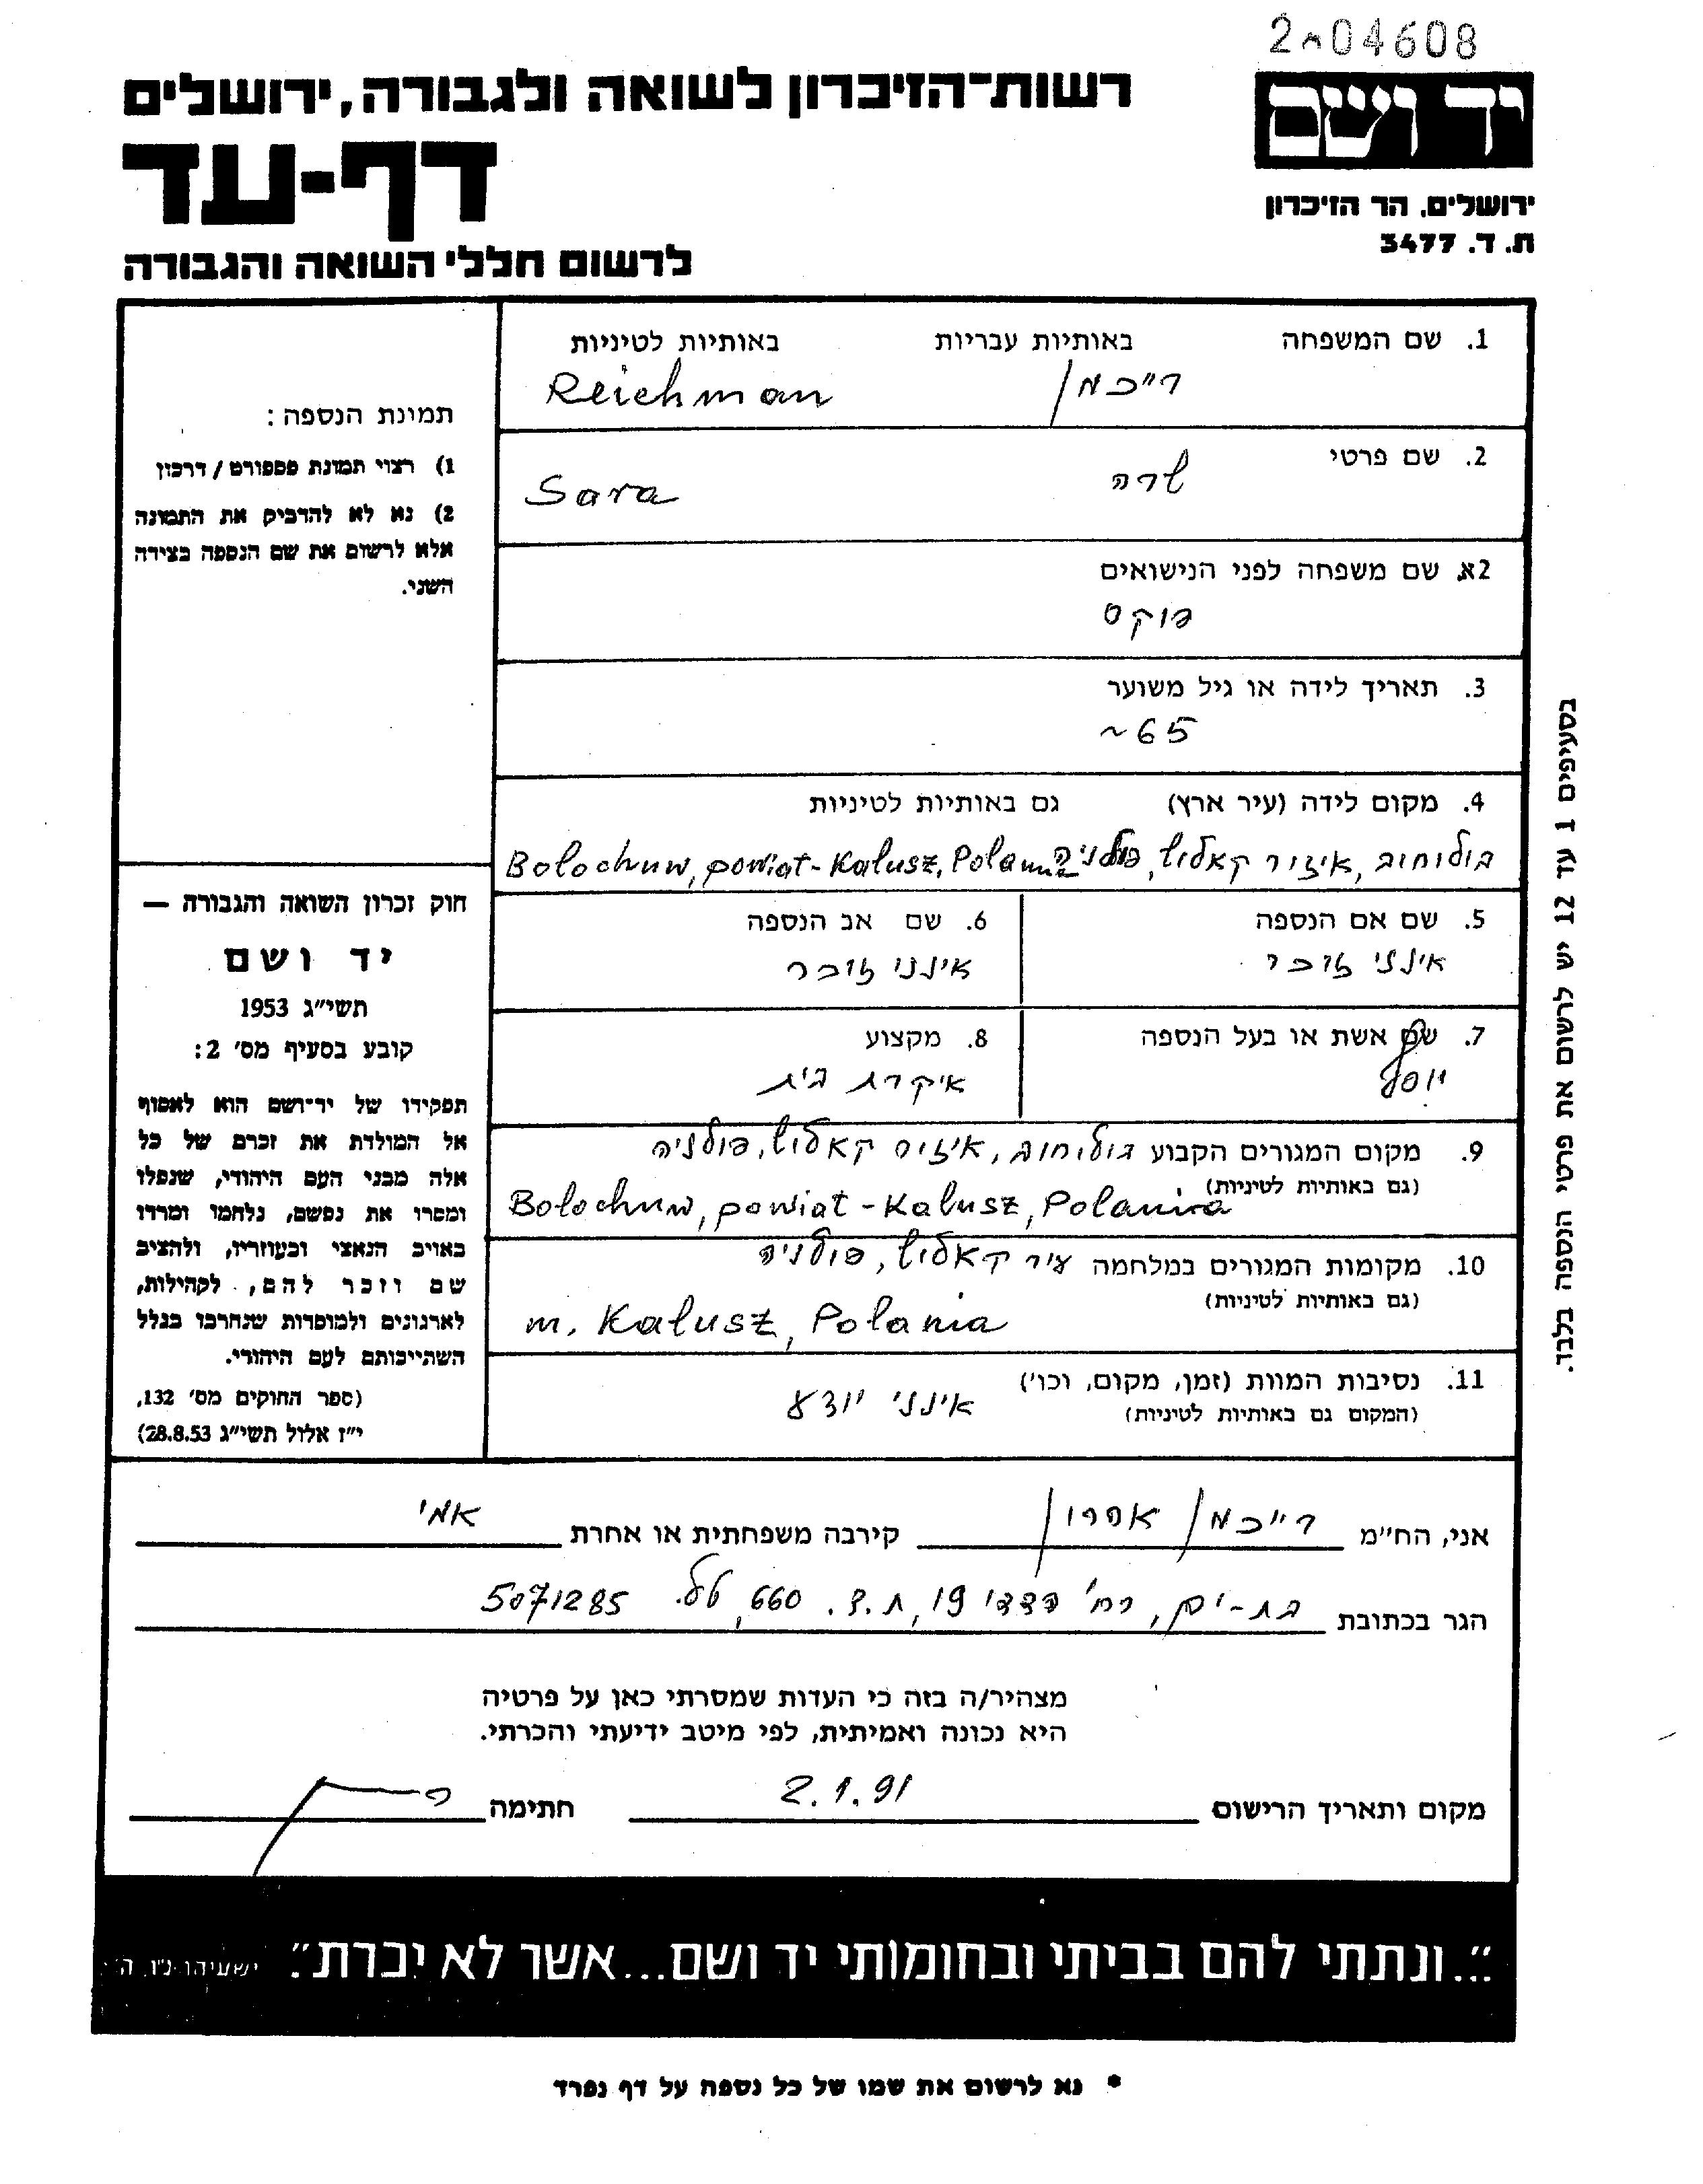 2004608
רשות-הזיכרון לשואה ולגבורה, ירושלים
יד ושם
דף-עד
ירושלים, הר הזיכרון
ת. ד. 3477
לרשום חללי השואה והגבורה
1. שם המשפחה באותיות עבריות באותיות לטיניות
רייכמן Reichman
2. שם פרטי
שרה Sara
2א. שם משפחה לפני הנישואים
פוקס
3. תאריך לידה או גיל משוער
~65
4. מקום לידה (עיר ארץ) גם באותיות לטיניות
בולוחוב, איזור קאלוש, פולניה Bolochuw, powiat-Kalusz, Polania
5. שם אם הנספה
אינני זוכר
6. שם אב הנספה
אינני זוכר
7. שם אשת או בעל הנספה
יוסף
8. מקצוע
עקרת בית
9. מקום המגורים הקבוע בולוחוב, איזור קאלוש, פולניה
(גם באותיות לטיניות)
Bolochuw, powiat-Kalusz, Polania
10. מקומות המגורים במלחמה עיר קאלוש, פולניה
(גם באותיות לטיניות)
m. Kałusz, Polania
11. נסיבות המוות (זמן, מקום, וכו')
(המקום גם באותיות לטיניות)
אינני יודע
תמונת הנספה:
1) רצוי תמונת פספורט / דרכון
2) נא לא להדביק את התמונה
אלא לרשום את שם הנספה בצידה
השני.
חוק זכרון השואה והגבורה —
יד ושם
תשי״ג 1953
קובע בסעיף מס' 2:
תפקידו של יד-ושם הוא לאסוף
אל המולדת את זכרם של כל
אלה מבני העם היהודי, שנפלו
ומסרו את נפשם, נלחמו ומרדו
באויב הנאצי ובעוזריו, ולהציב
שם וזכר להם, לקהילות,
לארגונים ולמוסדות שנחרבו בגלל
השתייכותם לעם היהודי.
(ספר החוקים מס' 132,
י״ז אלול תשי״ג 28.8.53)
בסעיפים 1 עד 12 יש לרשום את פרטי הנספה בלבד.
אני, הח״מ רייכמן אהרון קירבה משפחתית או אחרת אמי
הגר בכתובת בת-ים, רח' 19, ת.ד. 660, טל. 5071285
מצהיר/ה בזה כי העדות שמסרתי כאן על פרטיה
היא נכונה ואמיתית, לפי מיטב ידיעתי והכרתי.
מקום ותאריך הרישום 2.1.91 חתימה
״...ונתתי להם בביתי ובחומותי יד ושם...אשר לא יכרת״. ישעיהו נ״ו, ה'
* נא לרשום את שמו של כל נספה על דף נפרד